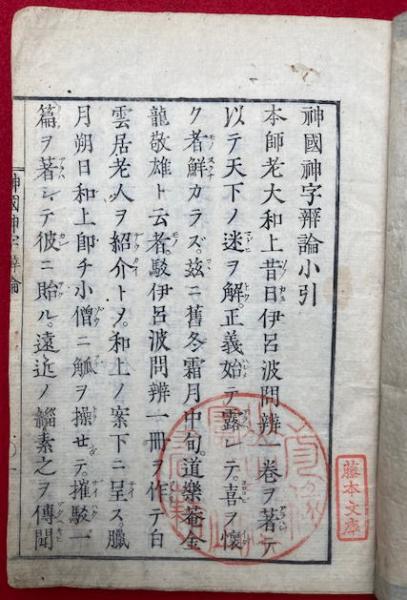 神國神字辨論小引
本師老大和上昔日伊呂波問辨一卷ヲ著テ
以テ天下ノ迷ヲ解。正義始テ露レテ。喜ヲ懷
ク者鮮カラズ。玆ニ舊冬霜月中旬。道樂菴金
龍敬雄ト云者。駁伊呂波問辨一冊ヲ作テ白
雲居老人ヲ紹介トメ。和上ノ案下ニ呈ス。臘
月朔日和上卽チ小僧ニ觚ヲ操セテ。摧駁一
篇ヲ著シテ彼ニ貽ル。遠近ノ緇素之ヲ傳聞
神國神字辨論
藤本文庫